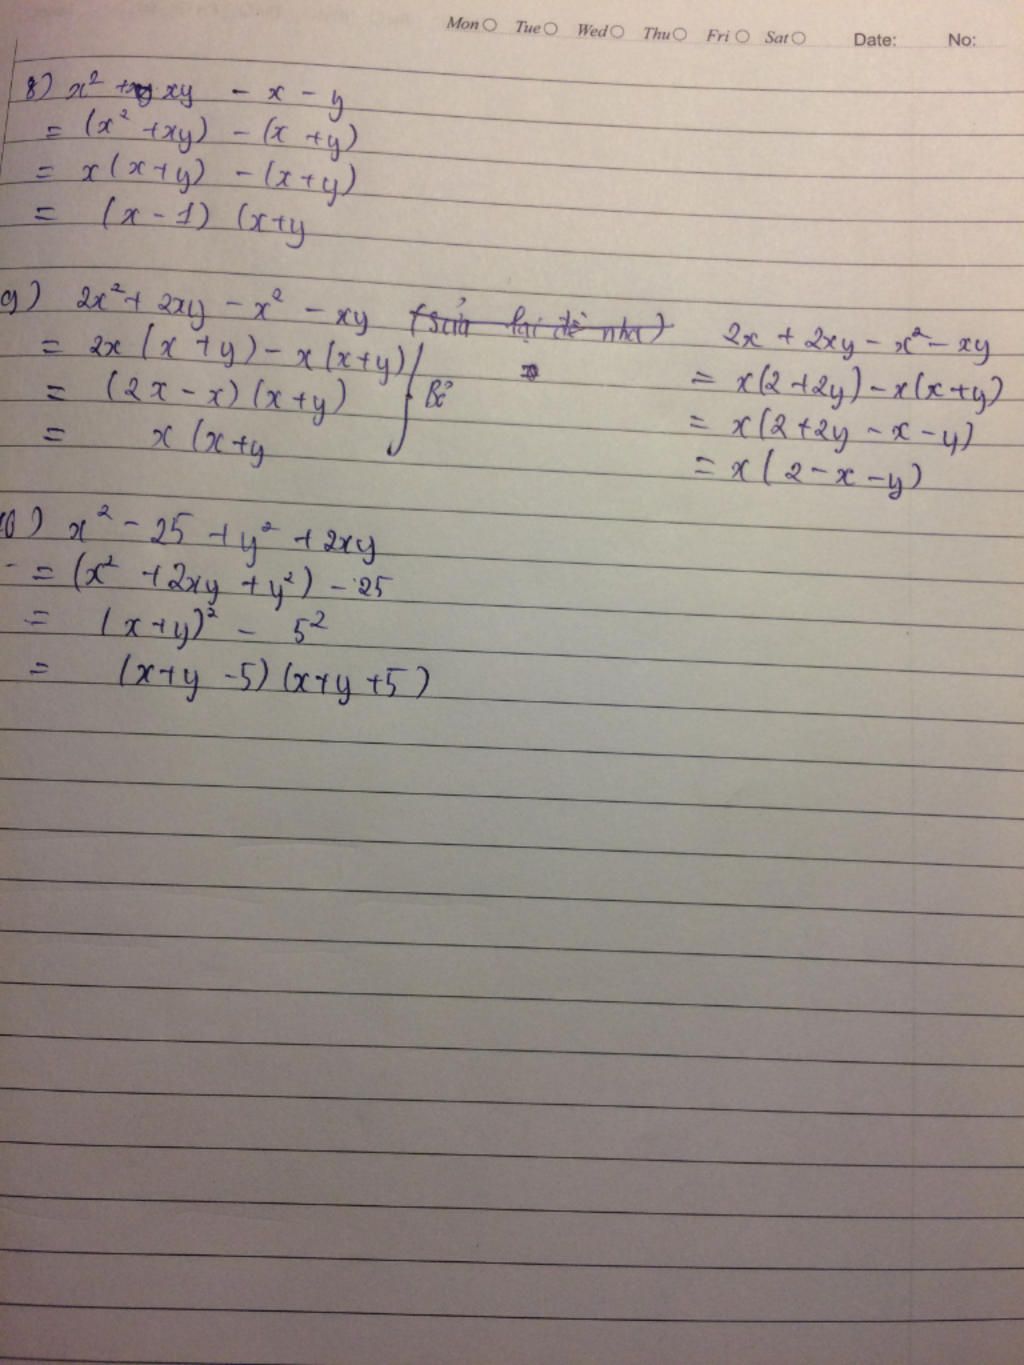 Mon Tue Wed Thu Fri Sat Date: No:
8) x² + xy - x - y
= (x² + xy) - (x + y)
= x(x+y) - (x+y)
= (x-1) (x+y
9) 2x² + 2xy - x² - xy (sửa lại đề nha)
= 2x(x+y) - x(x+y)
= (2x - x)(x+y)
= x(x+y
Bỏ
2x + 2xy - x² - xy
= x(2+2y) - x(x+y)
= x(2+2y - x - y)
= x(2 - x - y)
10) x² - 25 + y² + 2xy
= (x² + 2xy + y²) - 25
= (x+y)² - 5²
= (x+y - 5)(x+y + 5)